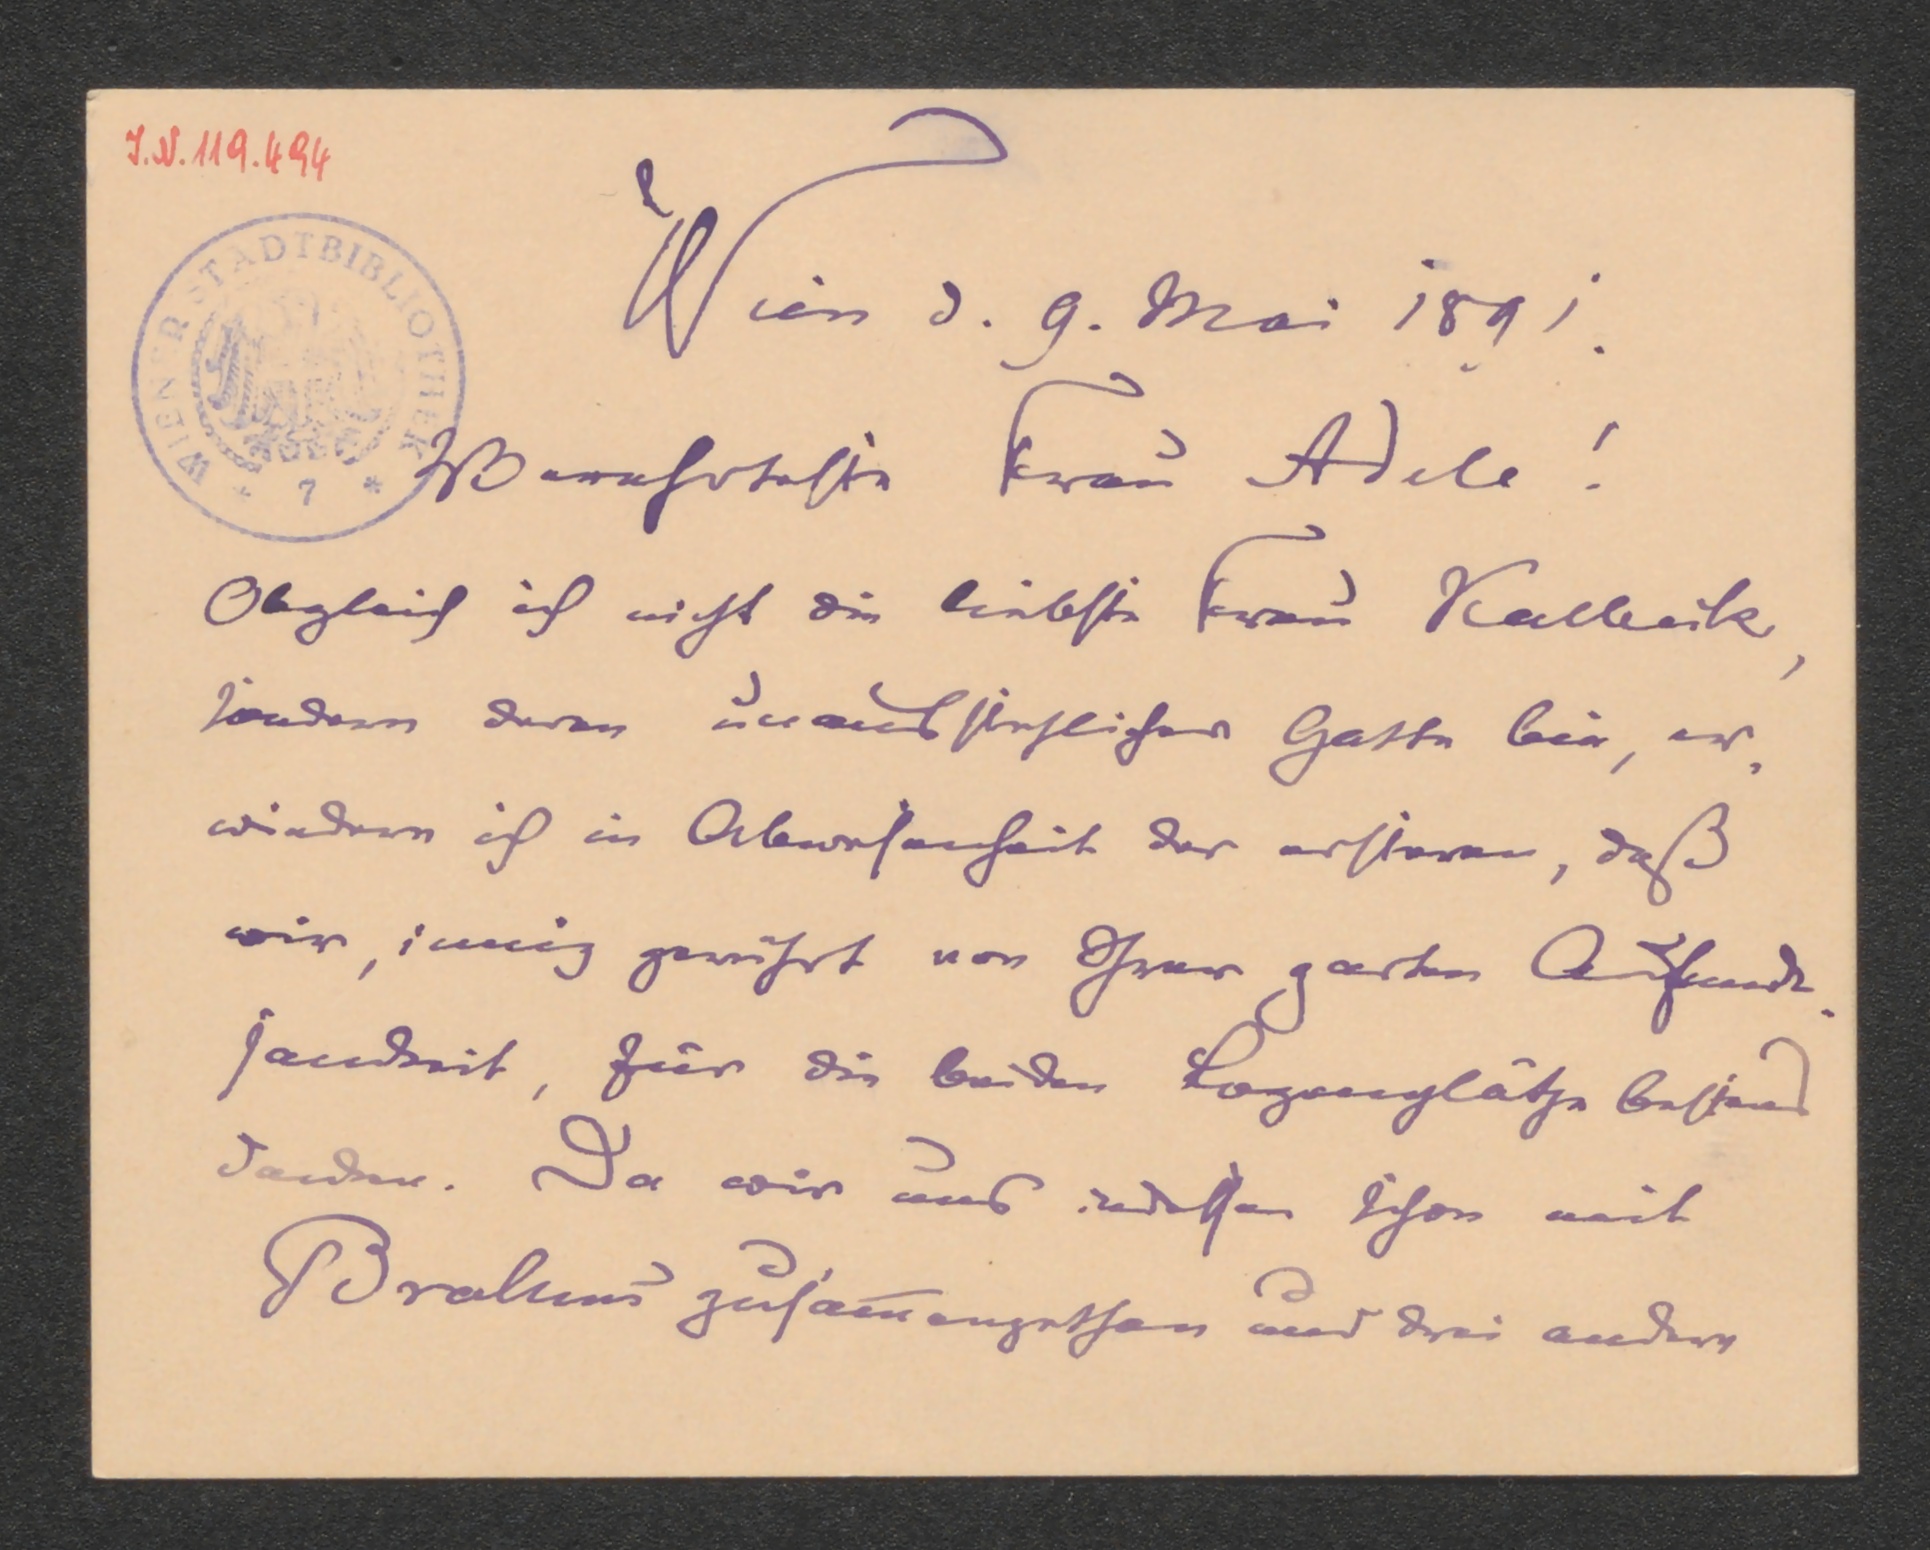 I.N. 119.494
WIENER STADTBIBLIOTHEK
* 7 *
Wien d. 9. Mai 1891.
Verehrteste Frau Adele!
Obgleich ich nicht die liebste Frau Kalbeck,
sondern deren unausstehlicher Gatte bin, er-
wiedere ich in Abwesenheit der ersteren, daß
wir, innig gerührt von Ihrer zarten
für die beiden Logenplätze bestens
danken. Da wir uns indessen schon mit
Brahms zusam̄engethan und drei andere